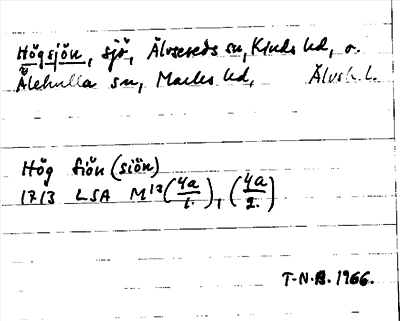 Högsjön, sjö, Älvsereds sn, Kinds hd, o.
Älekulla sn, Marks hd, Älvsb. l.
Hög siön (siön)
1713 LSA M12 (4a/1.), (4a/2.)
T-N.B. 1966.